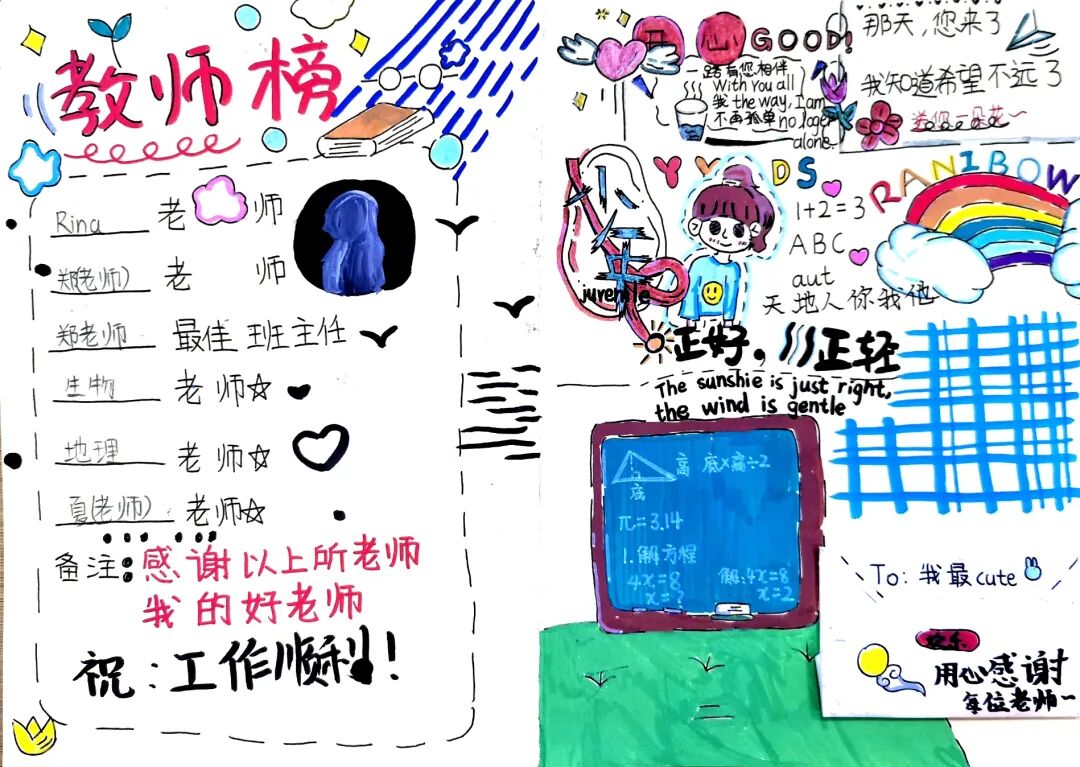 教师榜
Rina 老 师
郑(老师) 老 师
郑老师 最佳班主任
生物 老师☆
地理 老师☆
夏(老师) 老师☆
备注:感谢以上所老师
我的好老师
祝:工作顺利!
GOOD!
一路有您相伴
With you all
我 the way, I am
不再孤单 no loger
alone
那天,您来了
我知道希望不远了
送您一朵花~
YYDS
RANIBOW
1+2=3
ABC
aut
天地人你我他
juvenile
正好,川正轻
The sunshie is just right,
the wind is gentle
高 底×高÷2
底
π=3.14
1.解方程
4x=8 解:4x=8
x=? x=2
To:我最cute
用心感谢
每位老师~